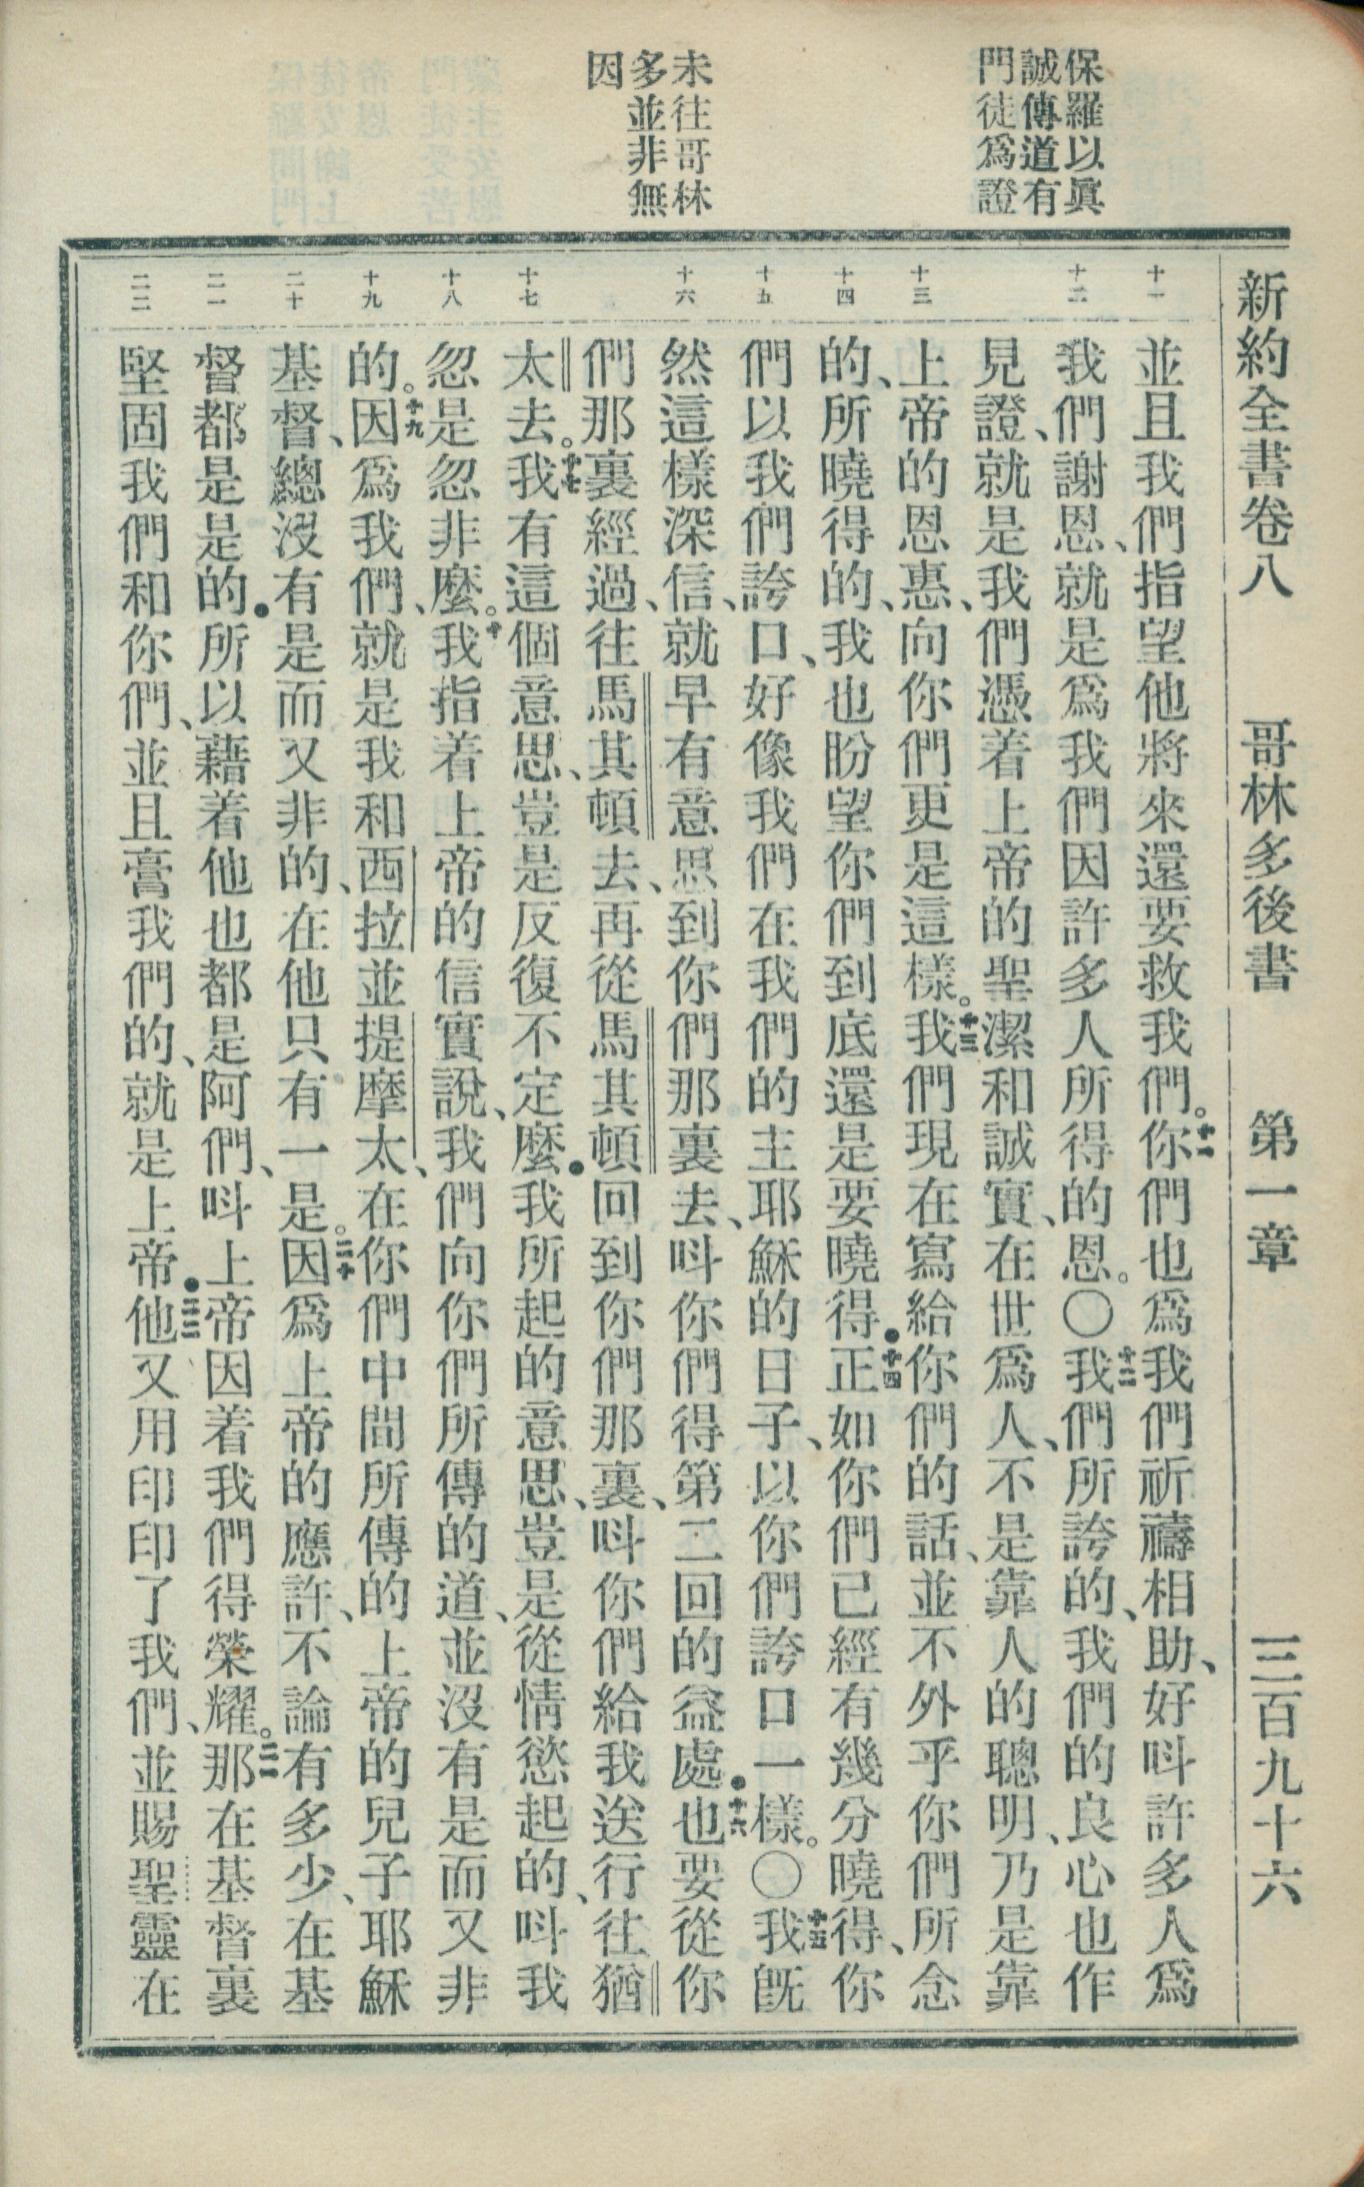 新約全書卷八　哥林多後書　第一章　三百九十六
保羅以眞
誠傳道有
門徒爲證
未往哥林
多並非無
因
十一
十二
十三
十四
十五
十六
十七
十八
十九
二十
二一
二二
並且我們指望他將來還要救我們。十一你們也爲我們祈禱相助、好呌許多人爲
我們謝恩、就是爲我們因許多人所得的恩。〇十二我們所誇的、我們的良心也作
見證、就是我們憑着上帝的聖潔和誠實、在世爲人、不是靠人的聰明、乃是靠
上帝的恩惠、向你們更是這樣。十三我們現在寫給你們的話、並不外乎你們所念
的、所曉得的、我也盼望你們到底還是要曉得．十四正如你們已經有幾分曉得、你
們以我們誇口、好像我們在我們的主耶穌的日子、以你們誇口一樣。〇十五我旣
然這樣深信、就早有意思到你們那裏去、呌你們得第二回的益處．十六也要從你
們那裏經過、往馬其頓去、再從馬其頓回到你們那裏、呌你們給我送行往猶
太去。十七我有這個意思、豈是反復不定麽．我所起的意思、豈是從情慾起的、呌我
忽是忽非麽。十八我指着上帝的信實說、我們向你們所傳的道、並沒有是而又非
的。十九因爲我們、就是我和西拉並提摩太、在你們中間所傳的上帝的兒子耶穌
基督、總沒有是而又非的、在他只有一是。二十因爲上帝的應許、不論有多少、在基
督都是是的．所以藉着他也都是阿們、呌上帝因着我們得榮耀。二一那在基督裏
堅固我們和你們、並且膏我們的、就是上帝．二二他又用印印了我們、並賜聖靈在